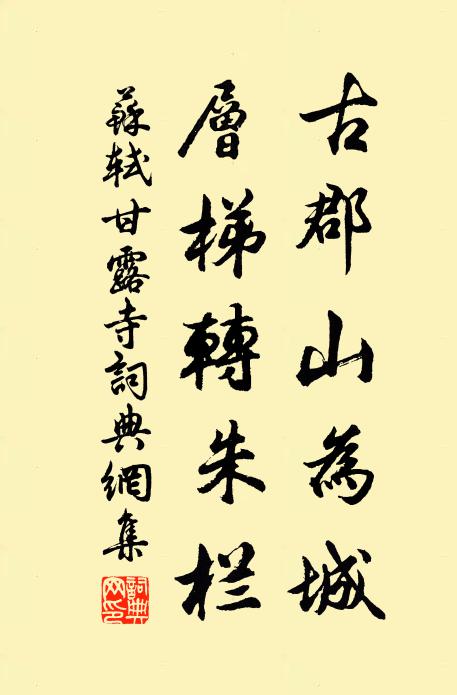 古郡山為城
層梯轉朱栏
蘇軾甘露寺詞典網集